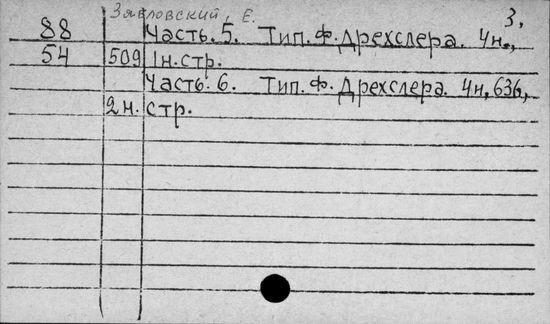 Зябловский, Е.
3.
88 Часть. 5. Тип. Ф. Дрехслера. 4н.,
54 509 1н. стр.
Часть. 6. Тип. Ф. Дрехслера. 4н, 636,
2н. стр.